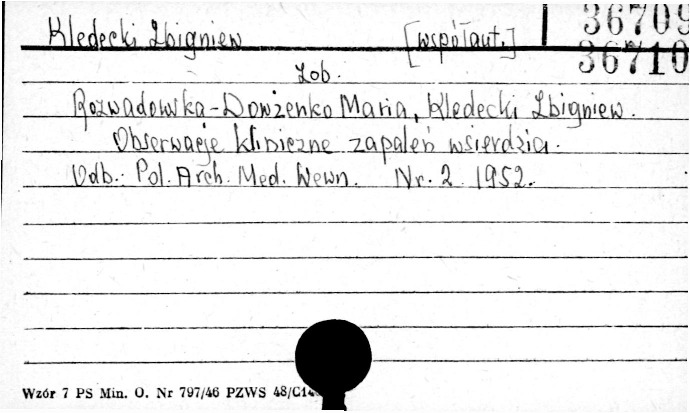 Kledecki Zbigniew [współaut.] 36709
36710
Zob.
Rozwadowska-Dowżenko Maria, Kledecki Zbigniew.
Obserwacje kliniczne zapaleń wsierdzia.
Odb.: Pol. Arch. Med. Wewn. Nr. 2 1952.
Wzór 7 PS Min. O. Nr 797/46 PZWS 48/C14